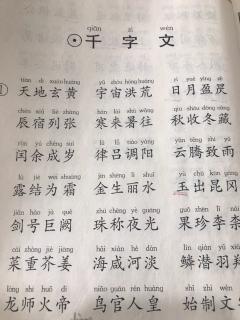 qiān zì wén
⊙千字文
tiān dì xuán huáng yǔ zhòu hóng huāng rì yuè yíng zè
天地玄黄 宇宙洪荒 日月盈昃
chén xiù liè zhāng hán lái shǔ wǎng qiū shōu dōng cáng
辰宿列张 寒来暑往 秋收冬藏
rùn yú chéng suì lǜ lǚ tiáo yáng yún téng zhì yǔ
闰余成岁 律吕调阳 云腾致雨
lù jié wéi shuāng jīn shēng lì shuǐ yù chū kūn gāng
露结为霜 金生丽水 玉出昆冈
jiàn hào jù què zhū chēng yè guāng guǒ zhēn lǐ
剑号巨阙 珠称夜光 果珍李
cài zhòng jiè jiāng hǎi xián hé dàn lín qián yǔ xiáng
菜重芥姜 海咸河淡 鳞潜羽翔
lóng shī huǒ dì niǎo guān rén huáng shǐ zhì wén
龙师火帝 鸟官人皇 始制文